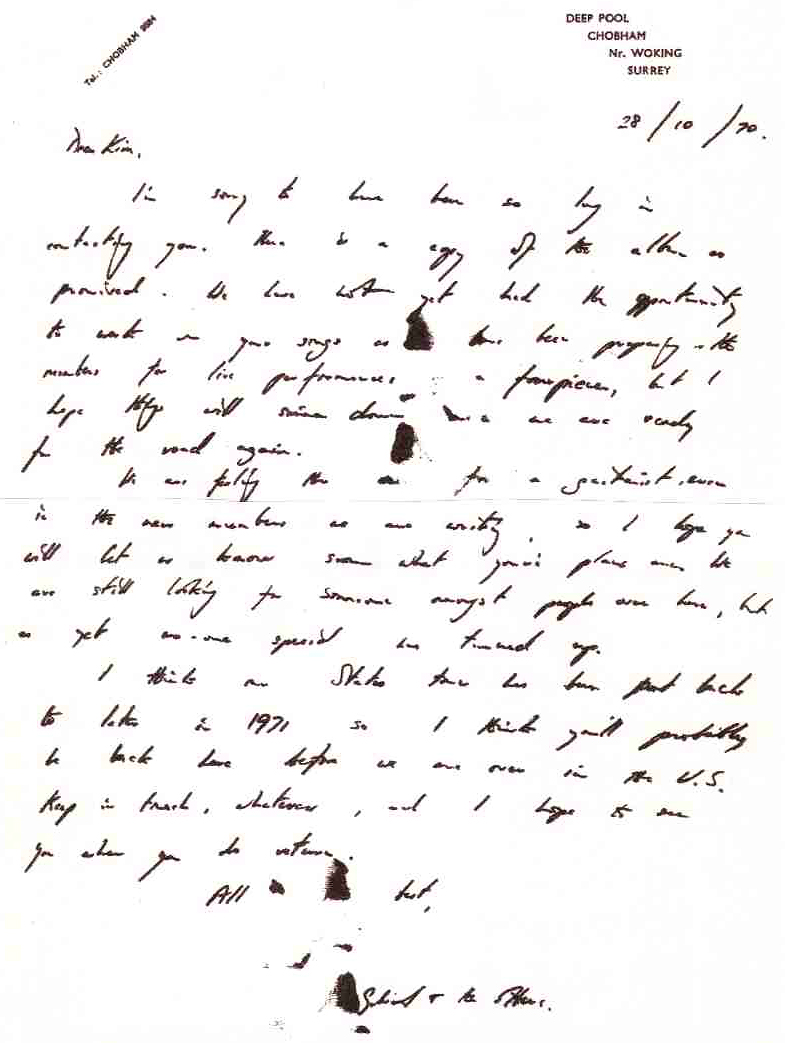 Tel.: CHOBHAM
DEEP POOL
CHOBHAM
Nr. WOKING
SURREY
28/10/70.
Dear Kim,
I'm sorry to have been so long in
contacting you. Here is a copy of the album as
promised. We have not yet had the opportunity
to work on your songs as have been preparing the
numbers for live performances but I
hope things will down we are ready
for the road again.
We are for a guitarist, even
in the new numbers we are writing, so I hope you
will let us know soon what your plans are. We
are still looking for someone amongst people over here, but
as yet no-one special has turned up.
I think our States tour has been put back
to later in 1971 so I think you'll probably
be back here before we are over in the U.S.
Keep in touch, whatever, and I hope to see
you when you do return.
All best,
& the others.